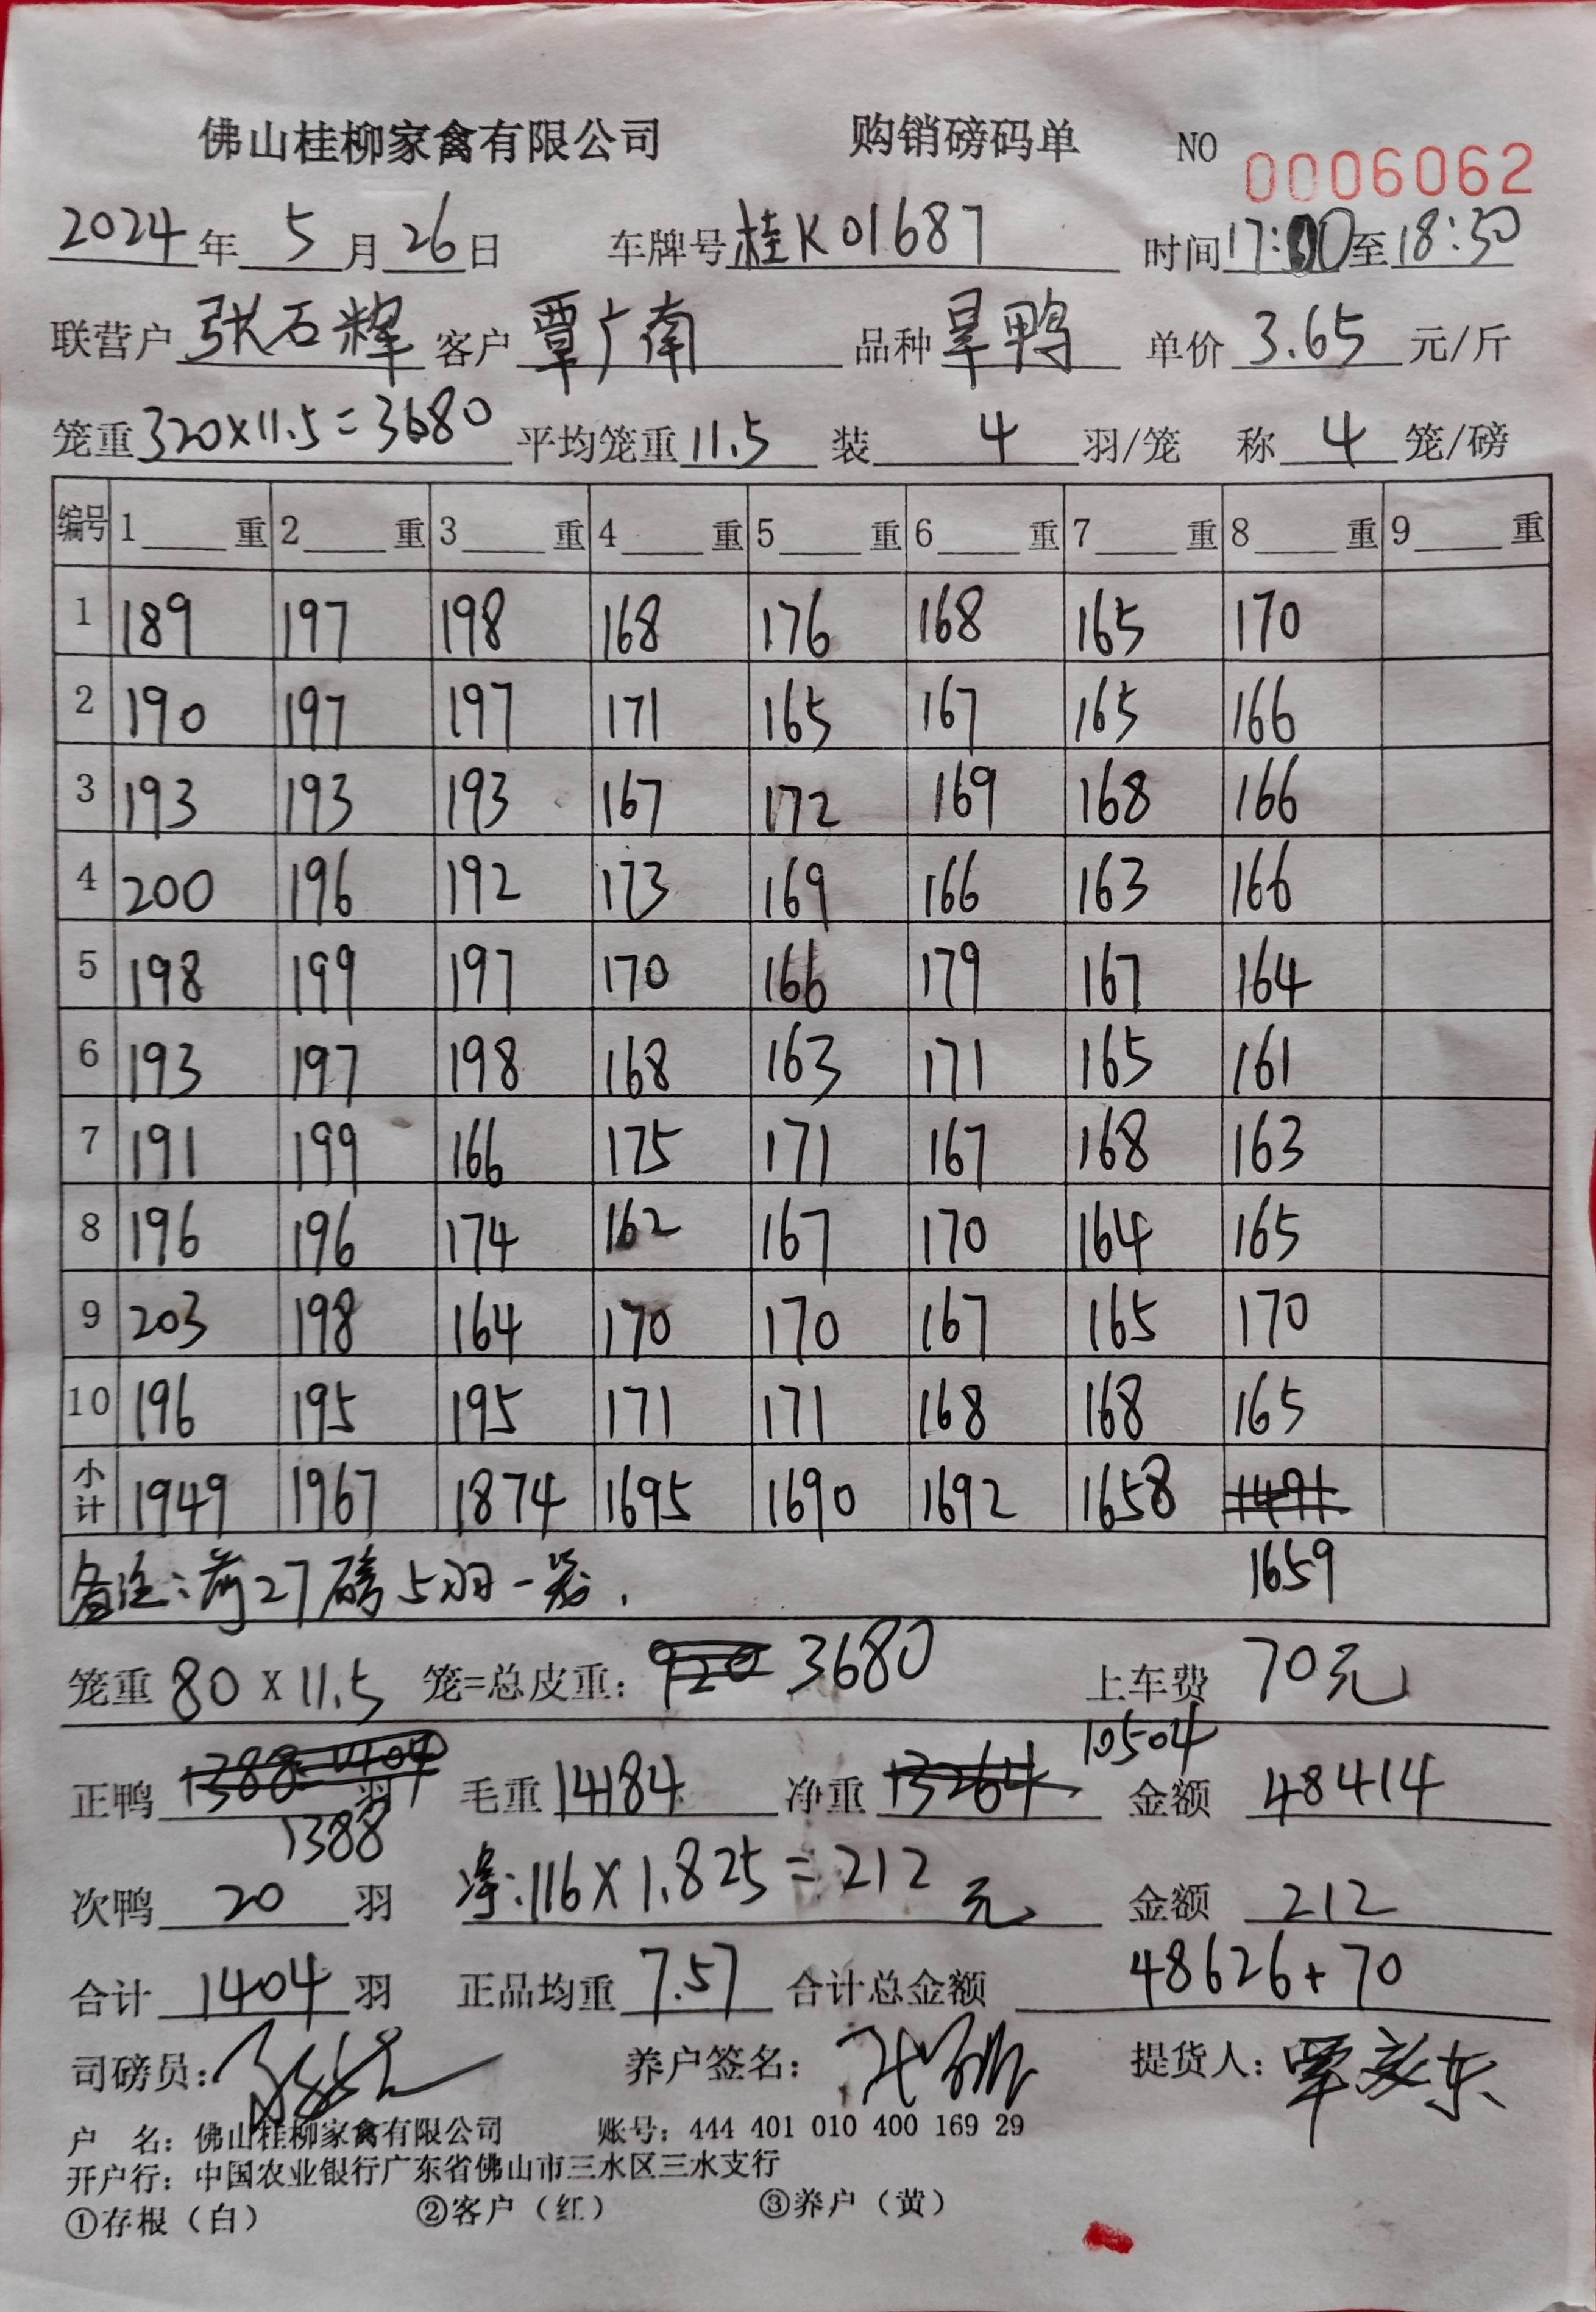 佛山桂柳家禽有限公司 购销磅码单 NO 0006062
2024年5月26日 车牌号桂K01687 时间17:00至18:30
联营户 张石辉 客户 覃广南 品种 旱鸭 单价 3.65 元/斤
笼重320×11.5=3680 平均笼重11.5 装 4 羽/笼 称 4 笼/磅
编号 1 重 2 重 3 重 4 重 5 重 6 重 7 重 8 重 9 重
1 189 197 198 168 176 168 165 170
2 190 197 197 171 165 167 165 166
3 193 193 193 167 172 169 168 166
4 200 196 192 173 169 166 163 166
5 198 199 197 170 166 179 167 164
6 193 197 198 168 163 171 165 161
7 191 199 166 175 171 167 168 163
8 196 196 174 162 167 170 164 165
9 203 198 164 170 170 167 165 170
10 196 195 195 171 171 168 168 165
小计 1949 1967 1874 1695 1690 1692 1658 1491
备注:前27磅5羽一笼. 1659
笼重 80×11.5 笼=总皮重: 920 3680 上车费 70元
10504
正鸭 1388 1404 羽 毛重 14184 净重 13264 金额 48414
1388
次鸭 20 羽 净:116×1.825=212元 金额 212
合计 1404 羽 正品均重 7.57 合计总金额 48626+70
司磅员: 养户签名: 提货人:
户 名: 佛山桂柳家禽有限公司 账号: 444 401 010 400 169 29
开户行: 中国农业银行广东省佛山市三水区三水支行
①存根(白) ②客户(红) ③养户(黄)